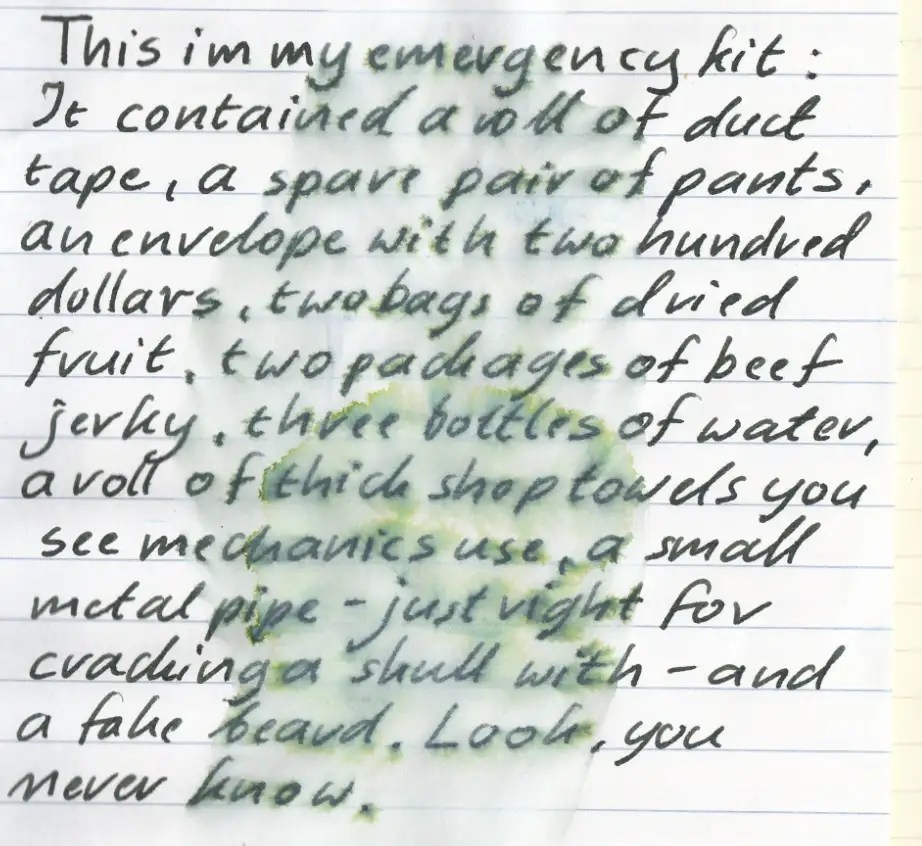 This im my emergency kit:
It contained a roll of duct
tape, a spare pair of pants,
an envelope with two hundred
dollars, two bags of dried
fruit, two packages of beef
jerky, three bottles of water,
a roll of thick shop towels you
see mechanics use, a small
metal pipe - just right for
cracking a skull with - and
a fake beard. Look, you
never know.